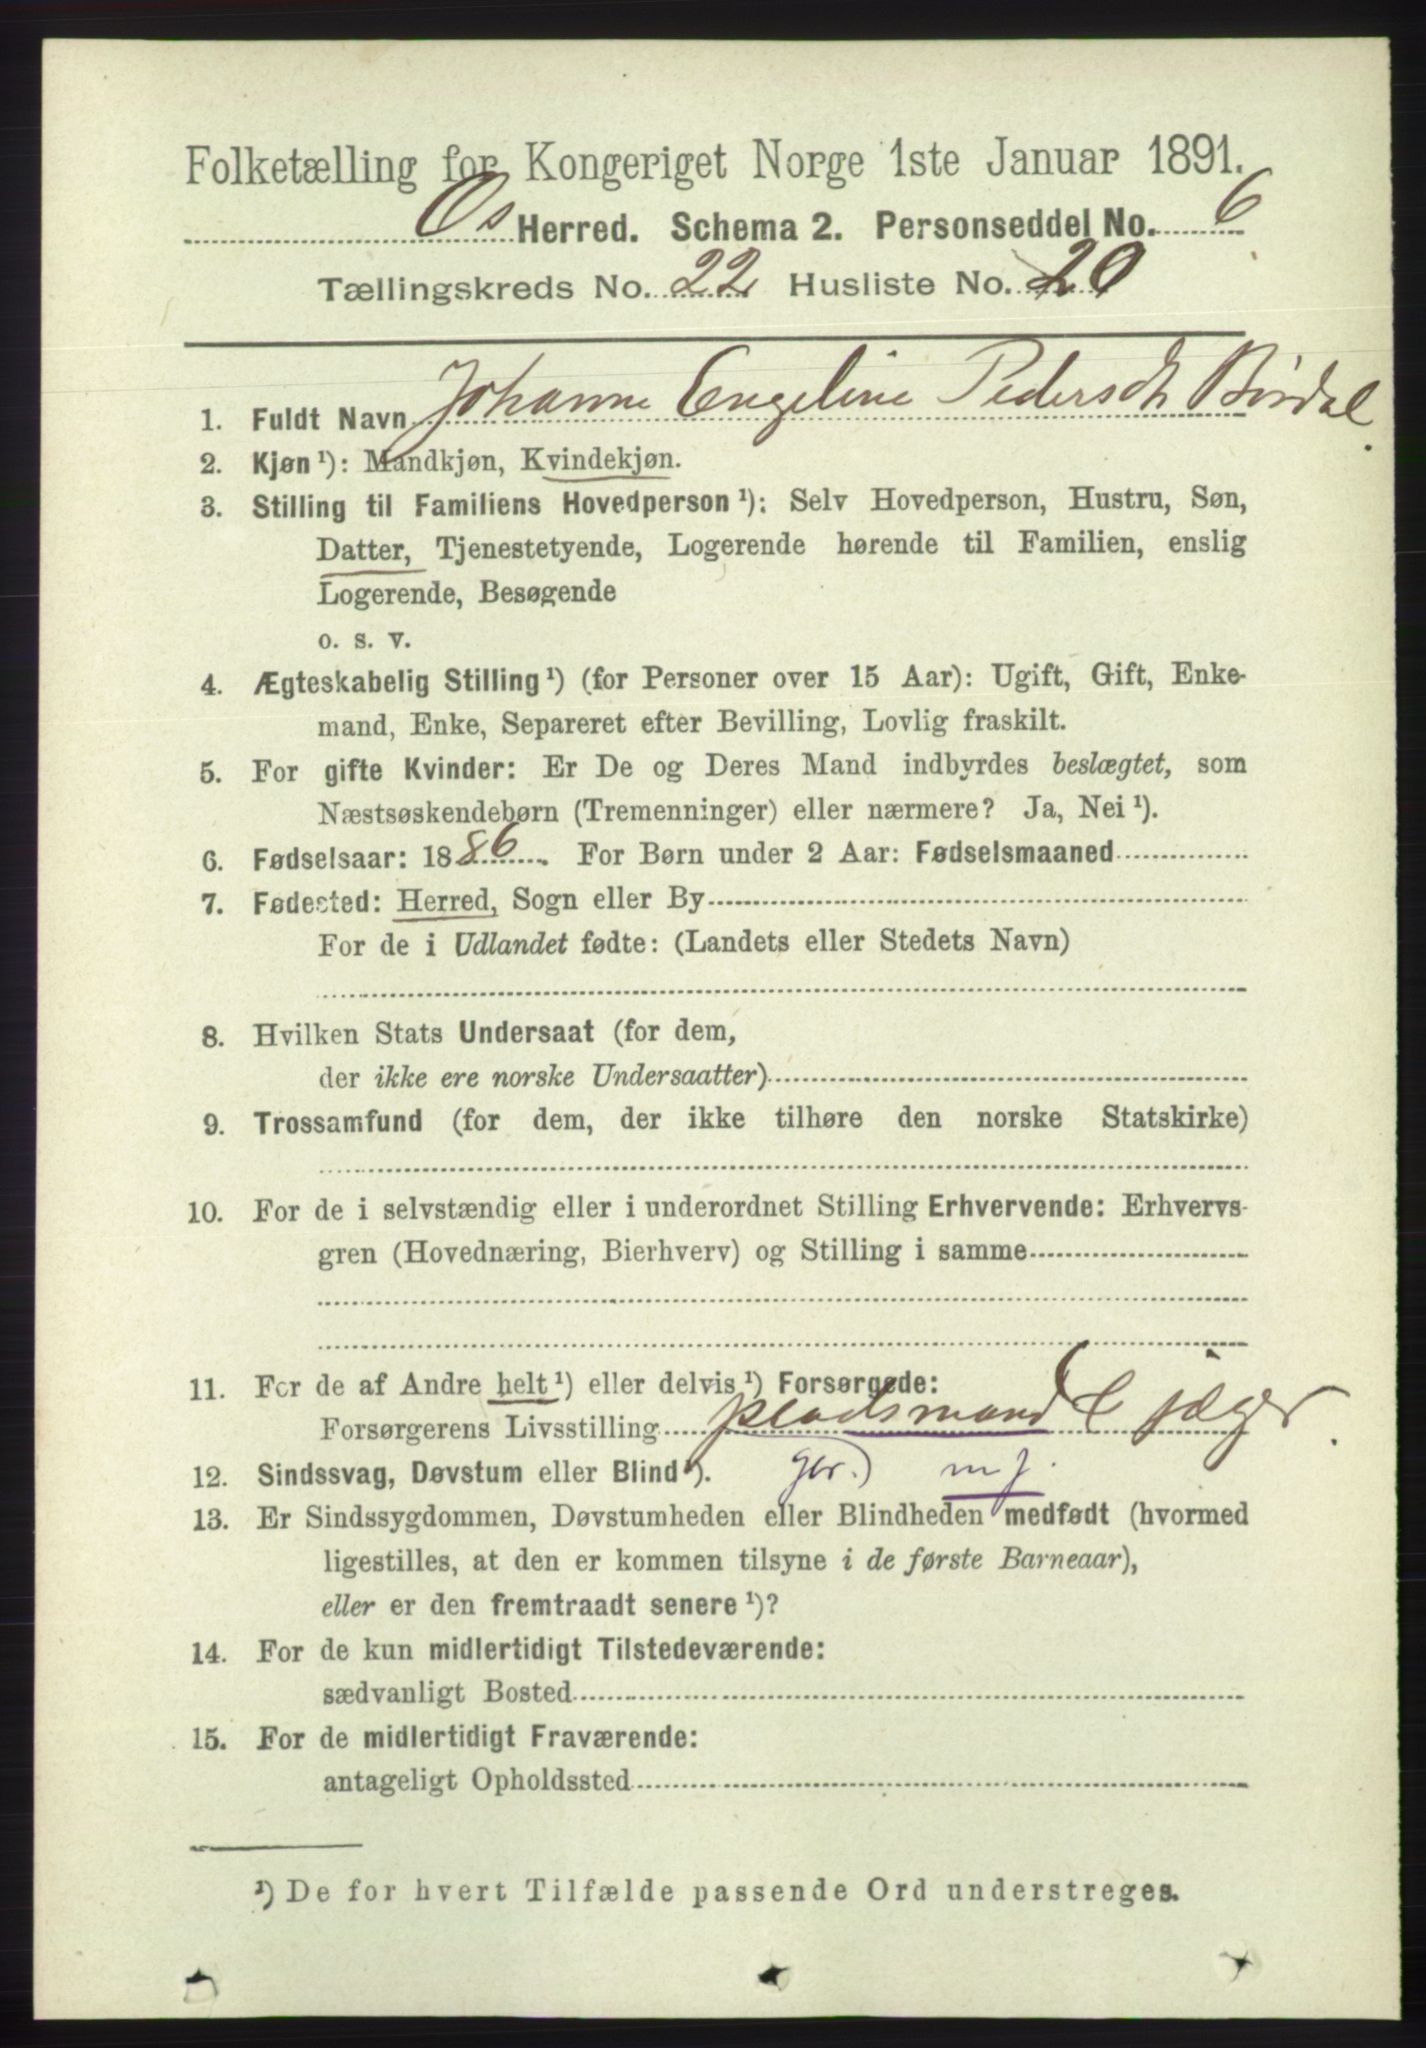 Folketælling for Kongeriget Norge 1ste Januar 1891.
Os Herred. Schema 2. Personseddel No. 6
Tællingskreds No. 22 Husliste No. 20
1. Fuldt Navn Johanne Engeline Pedersdt Birdal
2. Kjøn ¹): Mandkjøn, Kvindekjøn.
3. Stilling til Familiens Hovedperson ¹): Selv Hovedperson, Hustru, Søn,
Datter, Tjenestetyende, Logerende hørende til Familien, enslig
Logerende, Besøgende
o. s. v.
4. Ægteskabelig Stilling ¹) (for Personer over 15 Aar): Ugift, Gift, Enke-
mand, Enke, Separeret efter Bevilling, Lovlig fraskilt.
5. For gifte Kvinder: Er De og Deres Mand indbyrdes beslægtet, som
Næstsøskendebørn (Tremenninger) eller nærmere? Ja, Nei ¹).
6. Fødselsaar: 1886. For Børn under 2 Aar: Fødselsmaaned
7. Fødested: Herred, Sogn eller By
For de i Udlandet fødte: (Landets eller Stedets Navn)
8. Hvilken Stats Undersaat (for dem,
der ikke ere norske Undersaatter)
9. Trossamfund (for dem, der ikke tilhøre den norske Statskirke)
10. For de i selvstændig eller i underordnet Stilling Erhvervende: Erhvervs-
gren (Hovednæring, Bierhverv) og Stilling i samme
11. For de af Andre helt ¹) eller delvis ¹) Forsørgede:
Forsørgerens Livsstilling pladsmand & jæger
12. Sindssvag, Døvstum eller Blind ¹). m j.
13. Er Sindssygdommen, Døvstumheden eller Blindheden medfødt (hvormed
ligestilles, at den er kommen tilsyne i de første Barneaar),
eller er den fremtraadt senere ¹)?
14. For de kun midlertidigt Tilstedeværende:
sædvanligt Bosted
15. For de midlertidigt Fraværende:
antageligt Opholdssted
¹) De for hvert Tilfælde passende Ord understreges.